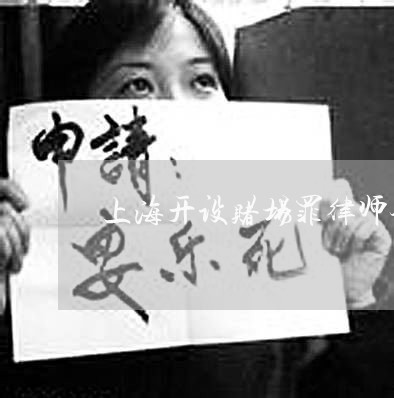 申請：
上海开设赌场罪律师
安乐死